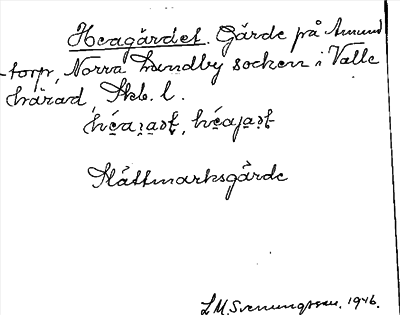 Heagärdet. Gärde på Amund
-torp, Norra Lundby socken i Valle
härad, Skb. l.
Slåttmarksgärde
L.M. Svenungsson. 1946.